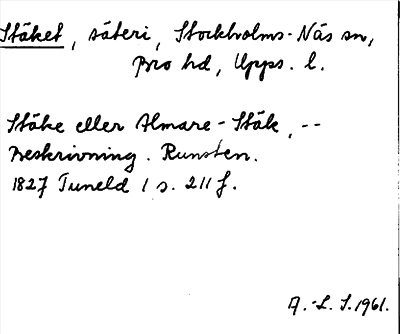 Stäket, säteri, Stockholms-Näs sn,
Bro hd, Upps. l.
Stäke eller Almare-Stäk, --
Beskrivning. Runsten.
1827 Tuneld 1 s. 211 f.
A.-L. S. 1961.